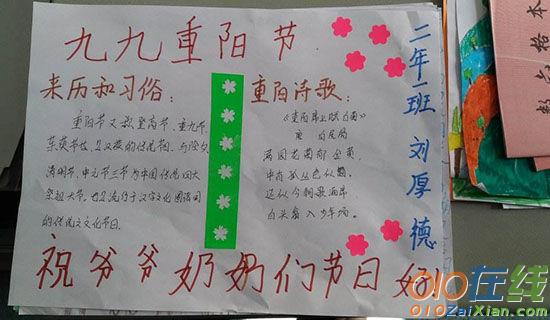 九九重阳节
来历和习俗：
重阳节又叫登高节、重九节、
茱萸节也是汉族的传统节日，与除夕
清明节、中元节三节为中国传统四大
祭祖大节，也是流行于汉字文化圈诸国
的传统文化节日。
重阳诗歌：
《重阳席上赋白菊》
唐 白居易
满园花菊郁金黄，
中有孤丛色似霜。
还似今朝歌酒席
白头翁入少年场。
二年一班 刘厚德
祝爷爷奶奶们节日好
数 格本
010在线
010ZaiXian.com